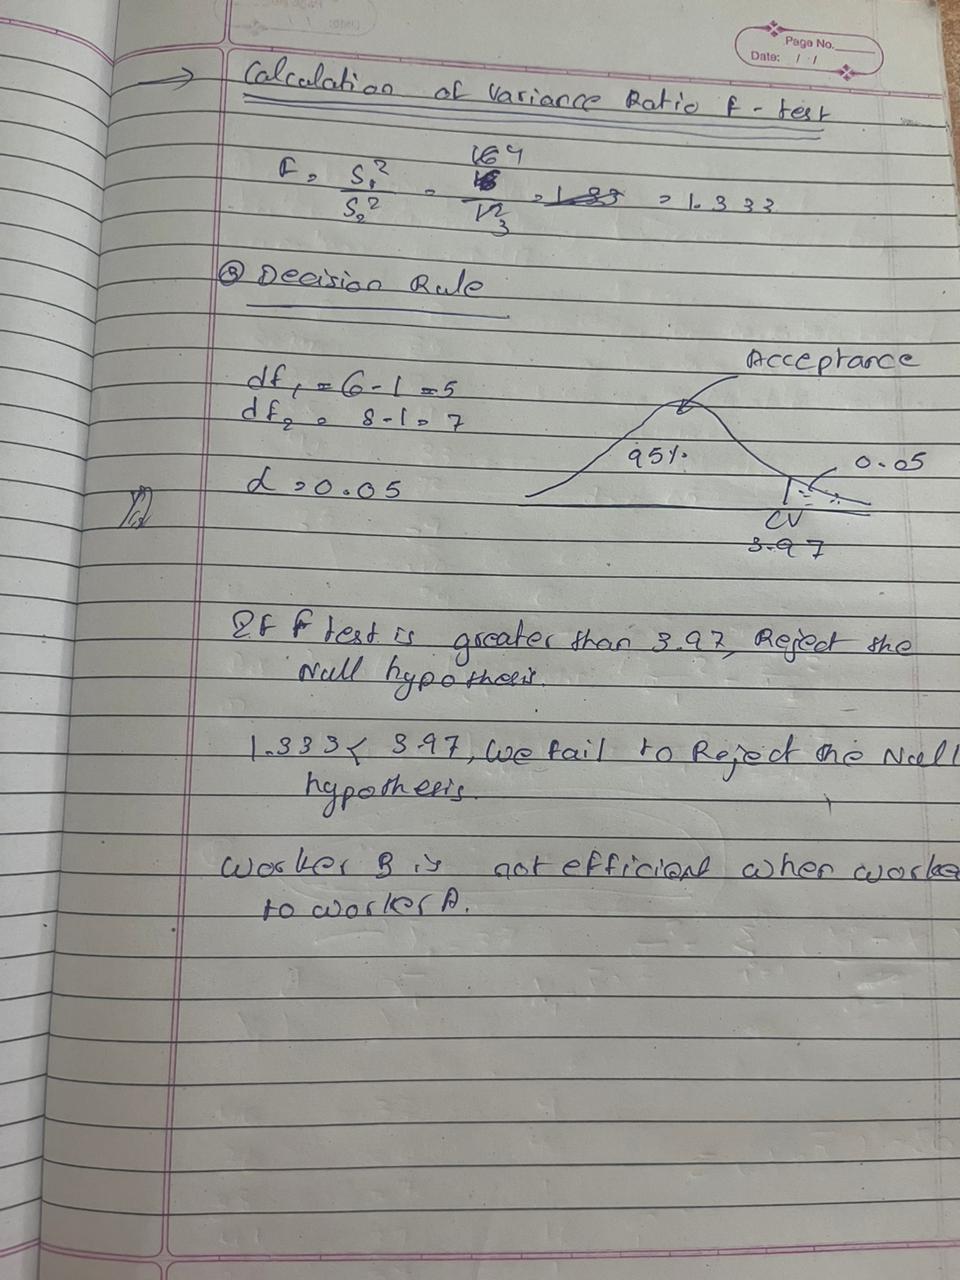 Page No.
Date: / /
→ Calculation of Variance Ratio F - test
F = S₁² / S₂² = 16 4 / 12 3 = 1.33 = 1.333
③ Decision Rule
Acceptance
df₁ = 6 - 1 = 5
df₂ = 8 - 1 = 7
95%
0.05
α = 0.05
CV
3.97
If F test is greater than 3.97, Reject the
Null hypothesis.
1.333 < 3.97, we fail to Reject the Null
hypothesis.
Worker B is not efficient when worke
to worker A.